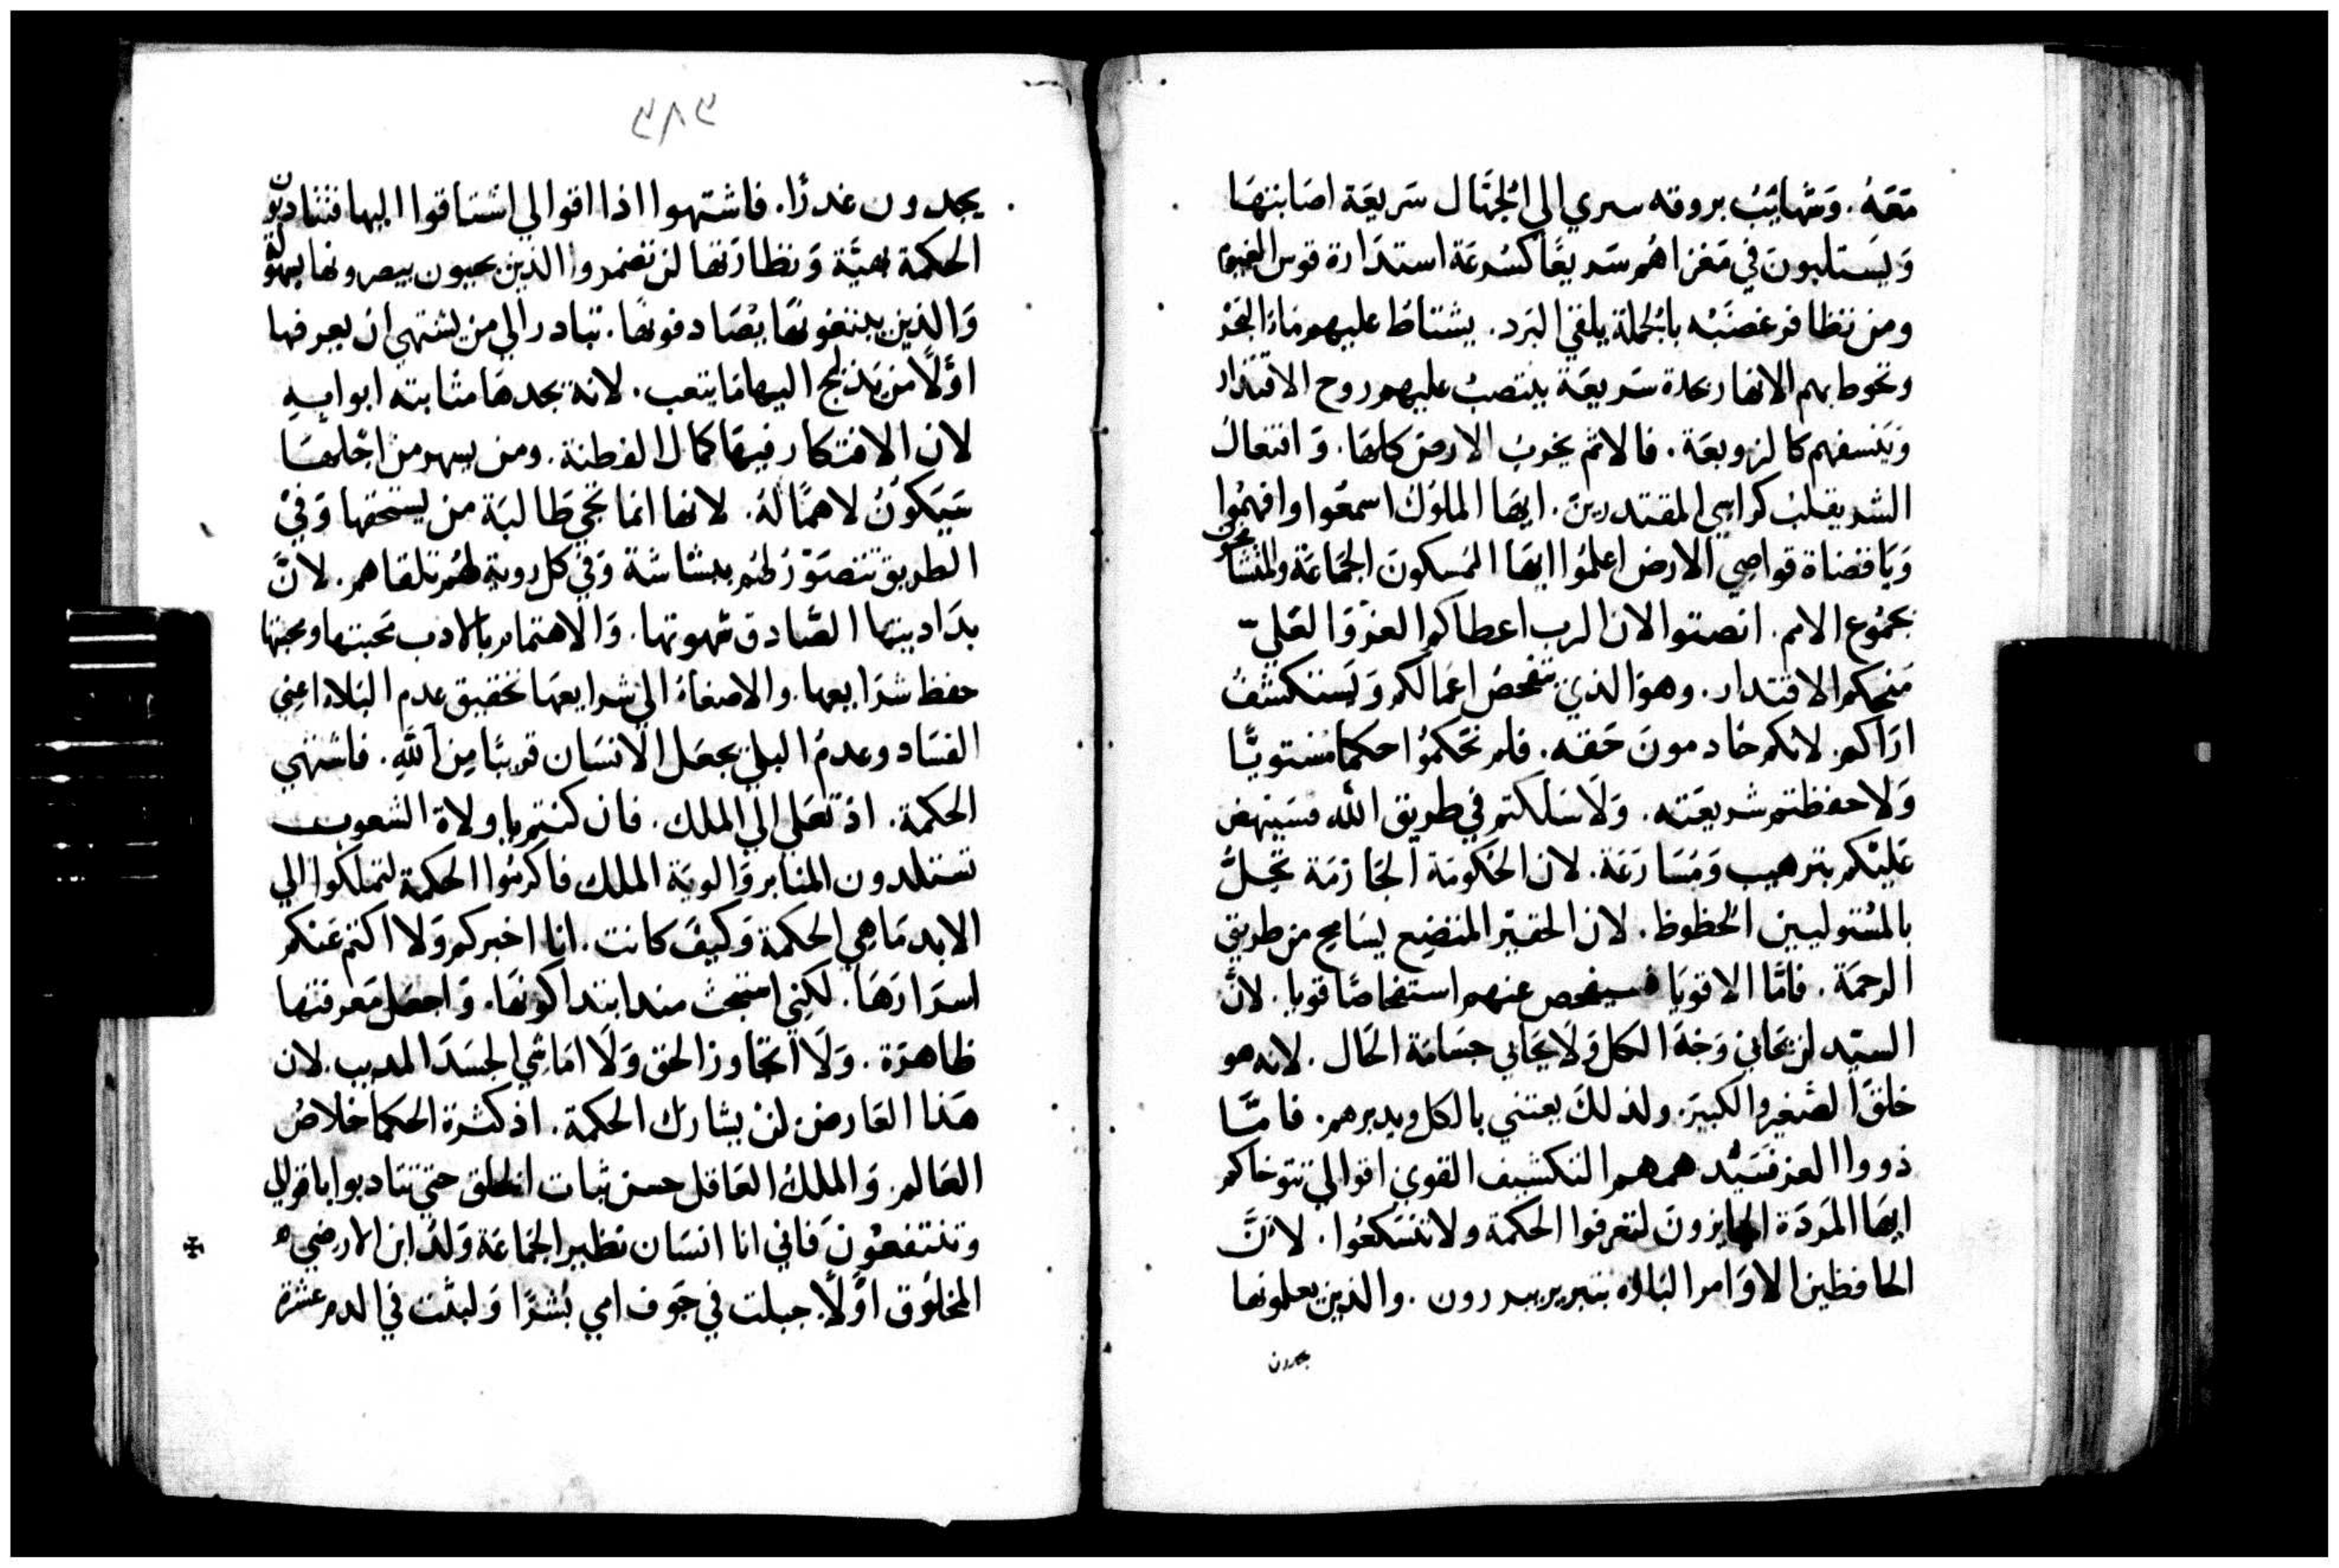 معَهُ. وَمهَايبُ بروقه سري الي الجهَال سَريعَة اصَابتهَا
وَيَستلبونَ في مَغزاهُم سَريعًا كسُرعَة استدَارة قوس الغيوم
ومن تظافر غضبَه بالجملة يلقي البَرد. يشتاط عليهم مَاء البَحر
وتحوط بهم الانهار بحدة سَريعَة ينتصبُ عليهم روح الاقتدار
وَينسفهم كالزوبعَة. فالاثم يخربُ الارض كلهَا. وَافتعالُ
الشر يقلبُ كراسي المقتدرينَ. ايهَا الملوُك اسمعُوا وافهمُوا
وَيَا قضاة قواصي الارض اعلمُوا ايهَا المسكونَ الجماعَة والمتشامخون
بجموُع الامم. انصتوا لان الرب اعطاكم العز وَالعَلي
منحكم الاقتدار. وهوَ الذي يتفحصُ اعمَالكم وَيستكشفُ
ارَاكم. لانكم خادمونَ حَقه. فلم تحَكموُا حكما مستويًا
وَلا حفظتم شريعَته. وَلا سَلكتم في طريق الله فسَينهض
عَليْكم بترهيب وَمسَارعَة. لان الحَكومَة الجَازمَة تحَلُّ
بالمُستوليين الحظوظ. لان الحقيْر المتضع يسَامح من طريق
الرحمَة. فامَّا الاقويَاء فسيفحص عنهم استفحاصًا قويا. لانَّ
السيّد لن يحَابي وَجهَ الكل وَلا يحَابي جسَامَة الحَال. لانه هو
خلقَ الصَغير والكبيَر. ولذلكَ يعتني بالكل ويدبرهم. فامَّا
ذووا العز فسَيُّدهمهم التكشيف القوي اقوالي تتوخاكم
ايهَا المَردَة الجايزونَ لتعرفوا الحكمة ولا تتسَكعُوا. لانَّ
الحافظين الاوَامر البَارَّه بتبرير يبررون. والذين يعلمونها
يجدون
٣٨٣
يجدون عذرًا. فاشتهوا اذا اقوالي اشتاقوا اليها فتتادبون
الحكمة بهيَّة وَنظارَتها لن تضمر والذين يحبون يبصرونها بسهولة
وَالذين يبتغونهَا يصَادفونهَا. تبادر الي من يشتهي ان يعرفها
اوَّلًا من يَدلج اليها مَا يتعب. لانه يجدهَا مثابته ابوابه
لان الافتكار فيهَا كمال الفطنة. ومن يسهر من اجلهَا
سَيَكوُنُ لا همَّا لهُ. لانها انما تجي طَالبَة من يستحقها وَفي
الطريق تتصَوّرُ لهُم ببشاشَة وَفي كل روية لهُم تلقاهم. لانَّ
بدَايتها الصَّادق شهوتها. وَالاهتمام بالادب محَبتها ومحبتها
حفظ شرَايعها. والاصغاءُ الي شرايعهَا تحقيق عدم البَلاء اعني
الفسَاد وعدمُ البلي يجعَل الانسَان قريبًا مِن الله. فاشتهي
الحكمة. اذ تعَلي الي الملك. فان كنتم يا ولاة الشعوب
تستلدون المنابر وَالوية الملك فاكرمُوا الحكمة لتملكوا الي
الابد مَا هي الحكمة وَكيفَ كانت. انا اخبركم وَلا اكتم عَنكم
اسرَارَهَا. لكني استبحث مند ابتدا كونهَا. وَاجعَل مَعرفتها
ظاهرَة. وَلا اتجَاوز الحق وَلا امَاشي الحسَدَ المديب. لان
هَذا العَارض لنْ يشارك الحكمة. اذ كثرة الحكما خلاصُ
العَالم. وَالملكُ العَاقل حسن ثبات الخلق حتي تتادبوا باقوالي
وتنتفعُونَ فاني انا انسَان نظير الجماعَة وَلدُ ابن الارضي
المخلوُق اوَّلاً. جبلت في جَوف امي بُشرًا وَلبثت في الدم عشرة